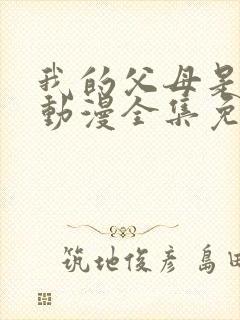 我的父母是
動漫全集免
筑地俊彦 島田